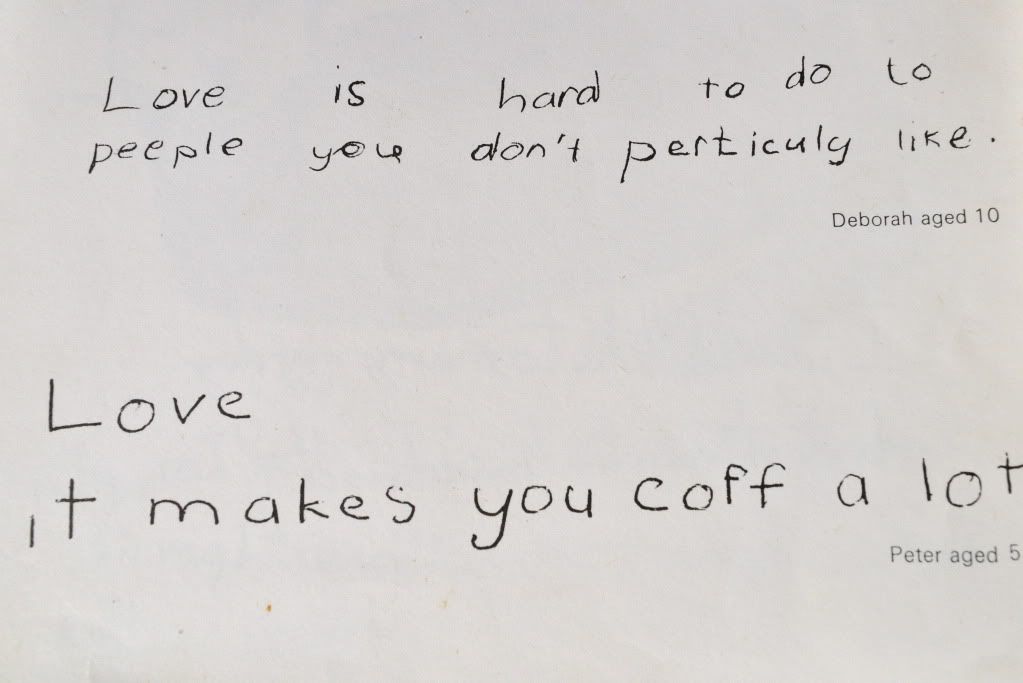 Love is hard to do to
peeple you don't perticuly like.
Deborah aged 10
Love
it makes you coff a lot
Peter aged 5